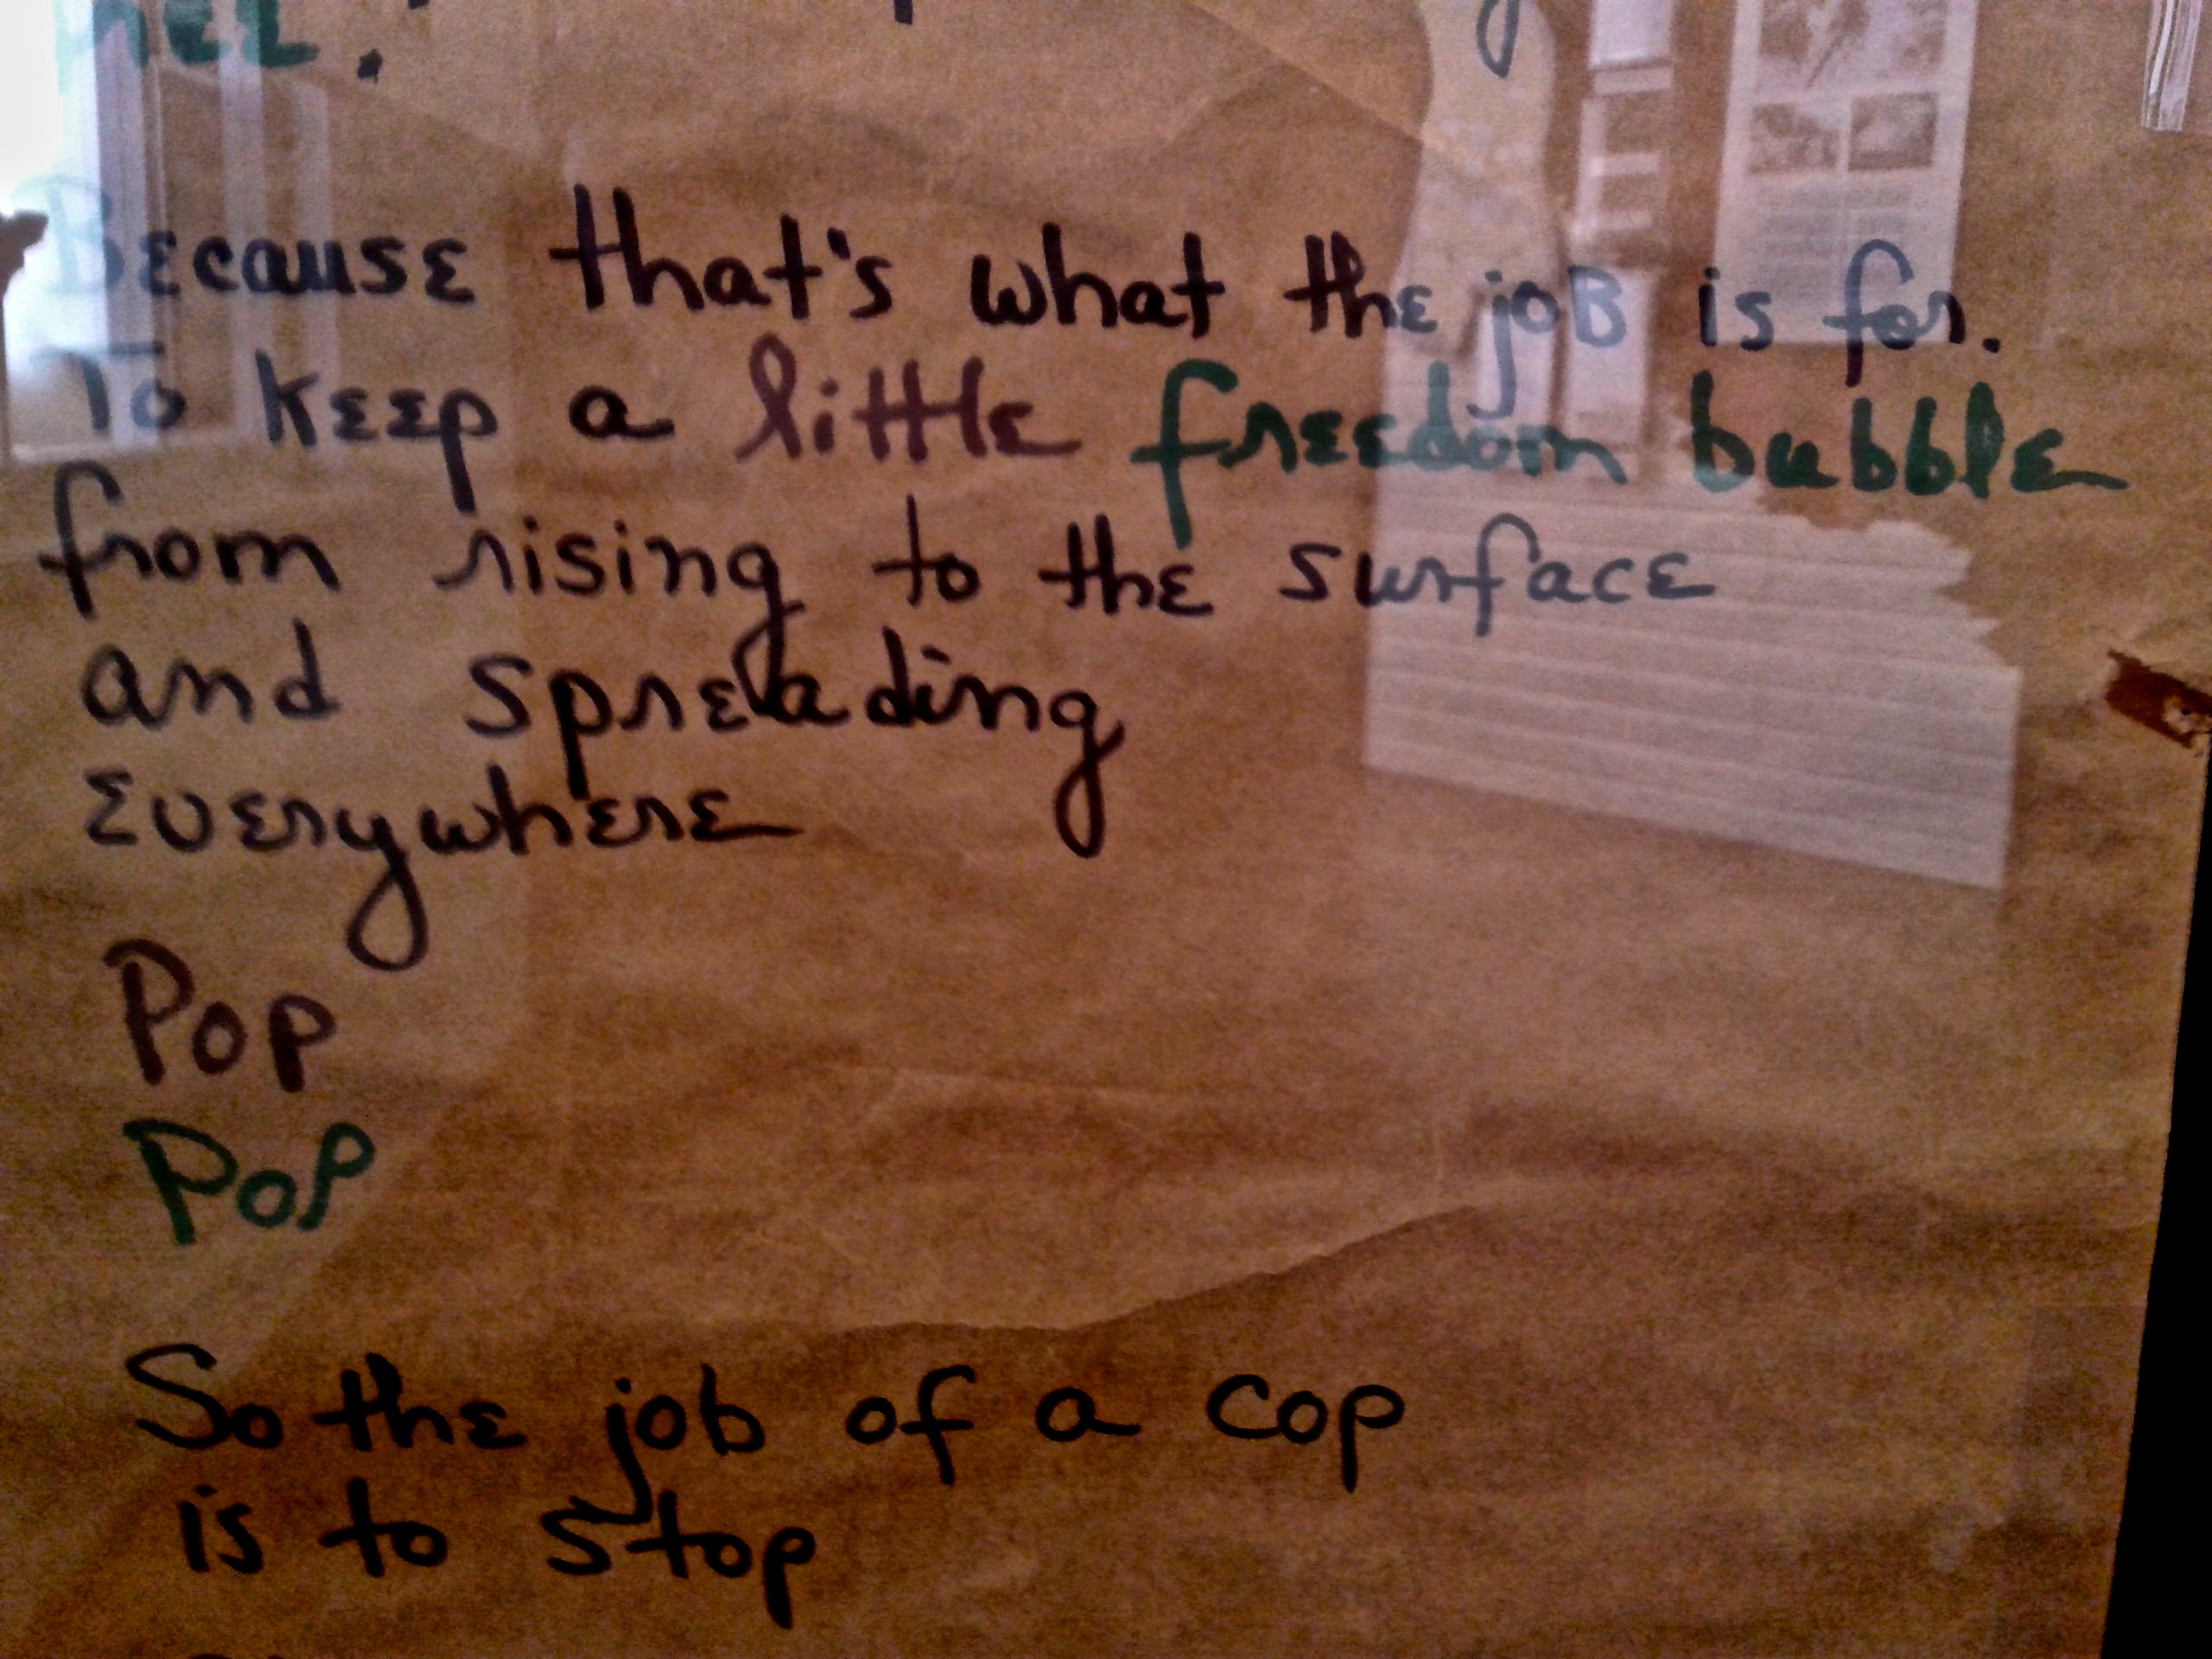 Because that's what the joB is for.
To keep a little freedom bubble
from rising to the surface
and spreading
everywhere
Pop
PoP
So the job of a cop
is to stop